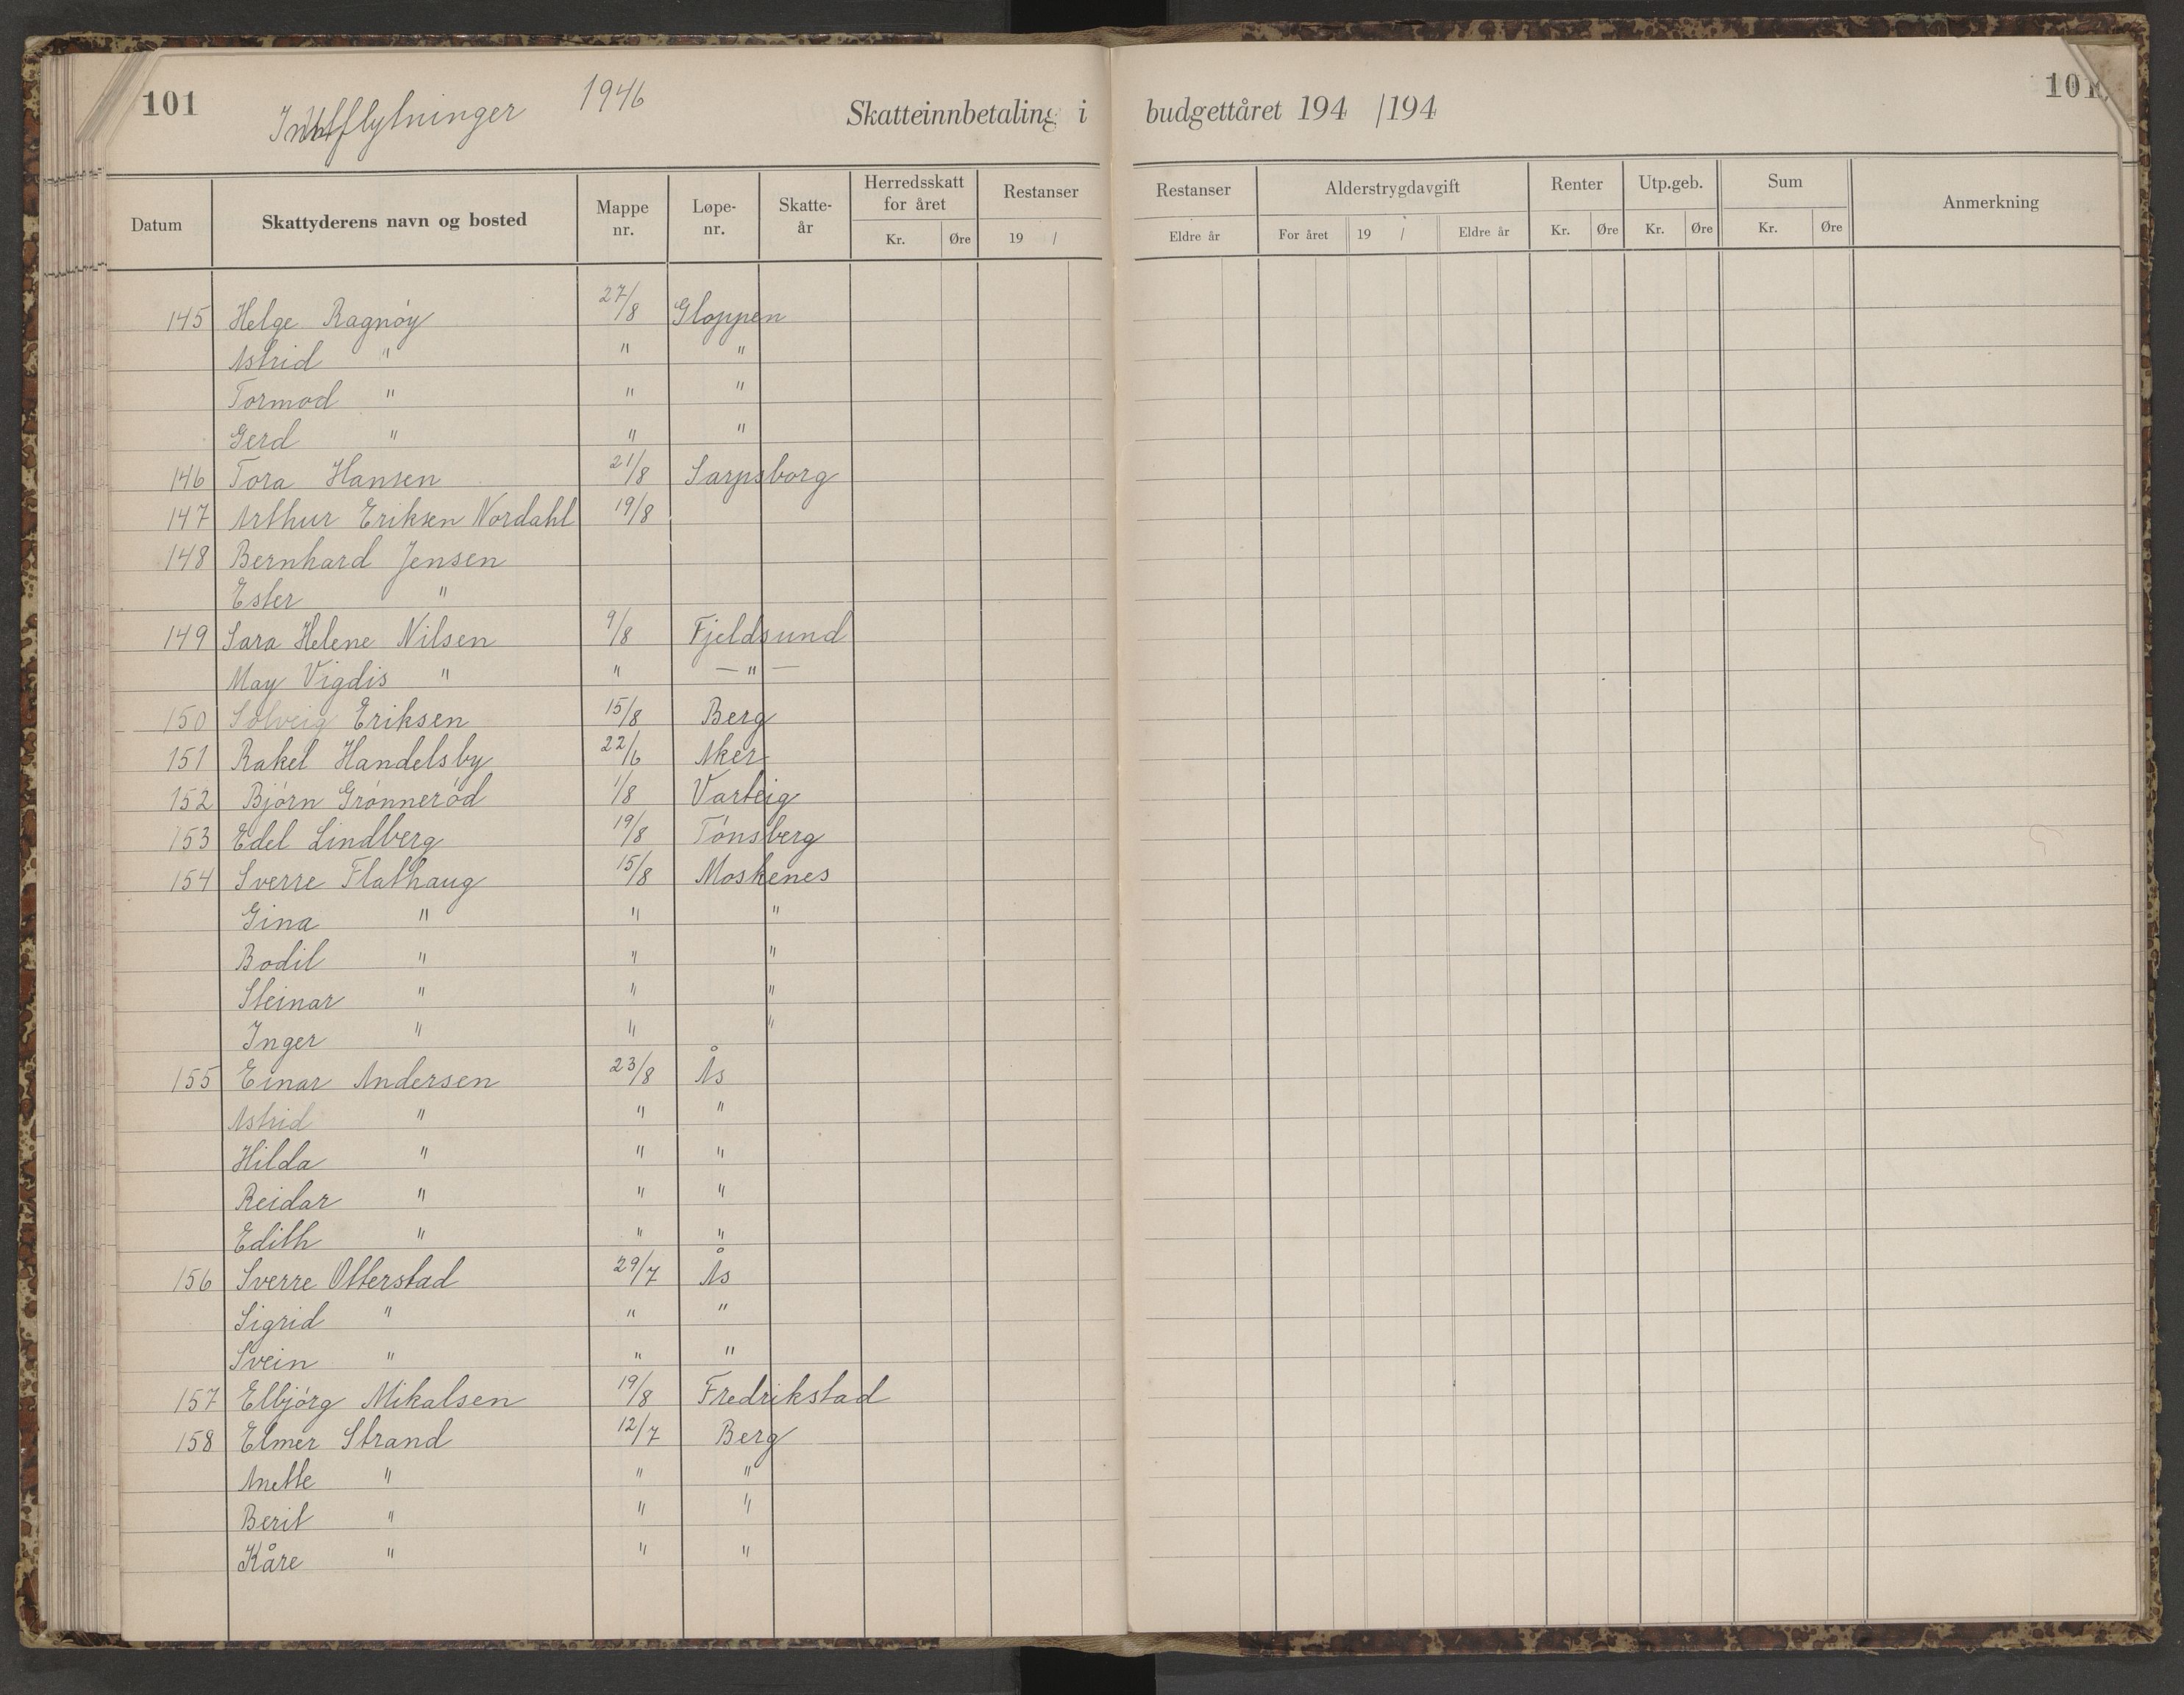 101 Innflytninger 1946 Skatteinnbetaling i budgettåret 194 /194 101
Datum Skattyderens navn og bosted Mappe nr. Løpe-nr. Skatte-år Herredsskatt for året Restanser Restanser Alderstrygdavgift Renter Utp.geb. Sum Anmerkning
Kr. Øre 19 / Eldre år For året 19 / Eldre år Kr. Øre Kr. Øre Kr. Øre
145 Helge Ragnøy 27/8 Gloppen
Astrid " " "
Tormod " " "
Gerd " " "
146 Tora Hansen 21/8 Sarpsborg
147 Arthur Eriksen Nordahl 19/8
148 Bernhard Jensen
Ester "
149 Sara Helene Nilsen 9/8 Fjeldsund
May Vigdis " " — " —
150 Solveig Eriksen 15/8 Berg
151 Rakel Handelsby 22/6 Aker
152 Bjørn Grønnerød 1/8 Varteig
153 Edel Lindberg 19/8 Tønsberg
154 Sverre Flathaug 15/8 Moskenes
Gina " " "
Bodil " " "
Steinar " " "
Inger " " "
155 Einar Andersen 23/8 Ås
Astrid " " "
Hilda " " "
Reidar " " "
Edith " " "
156 Sverre Otterstad 29/7 Ås
Sigrid " " "
Svein " " "
157 Elbjørg Mikalsen 19/8 Fredrikstad
158 Elmer Strand 12/7 Berg
Anette " " "
Berit " " "
Kåre " " "